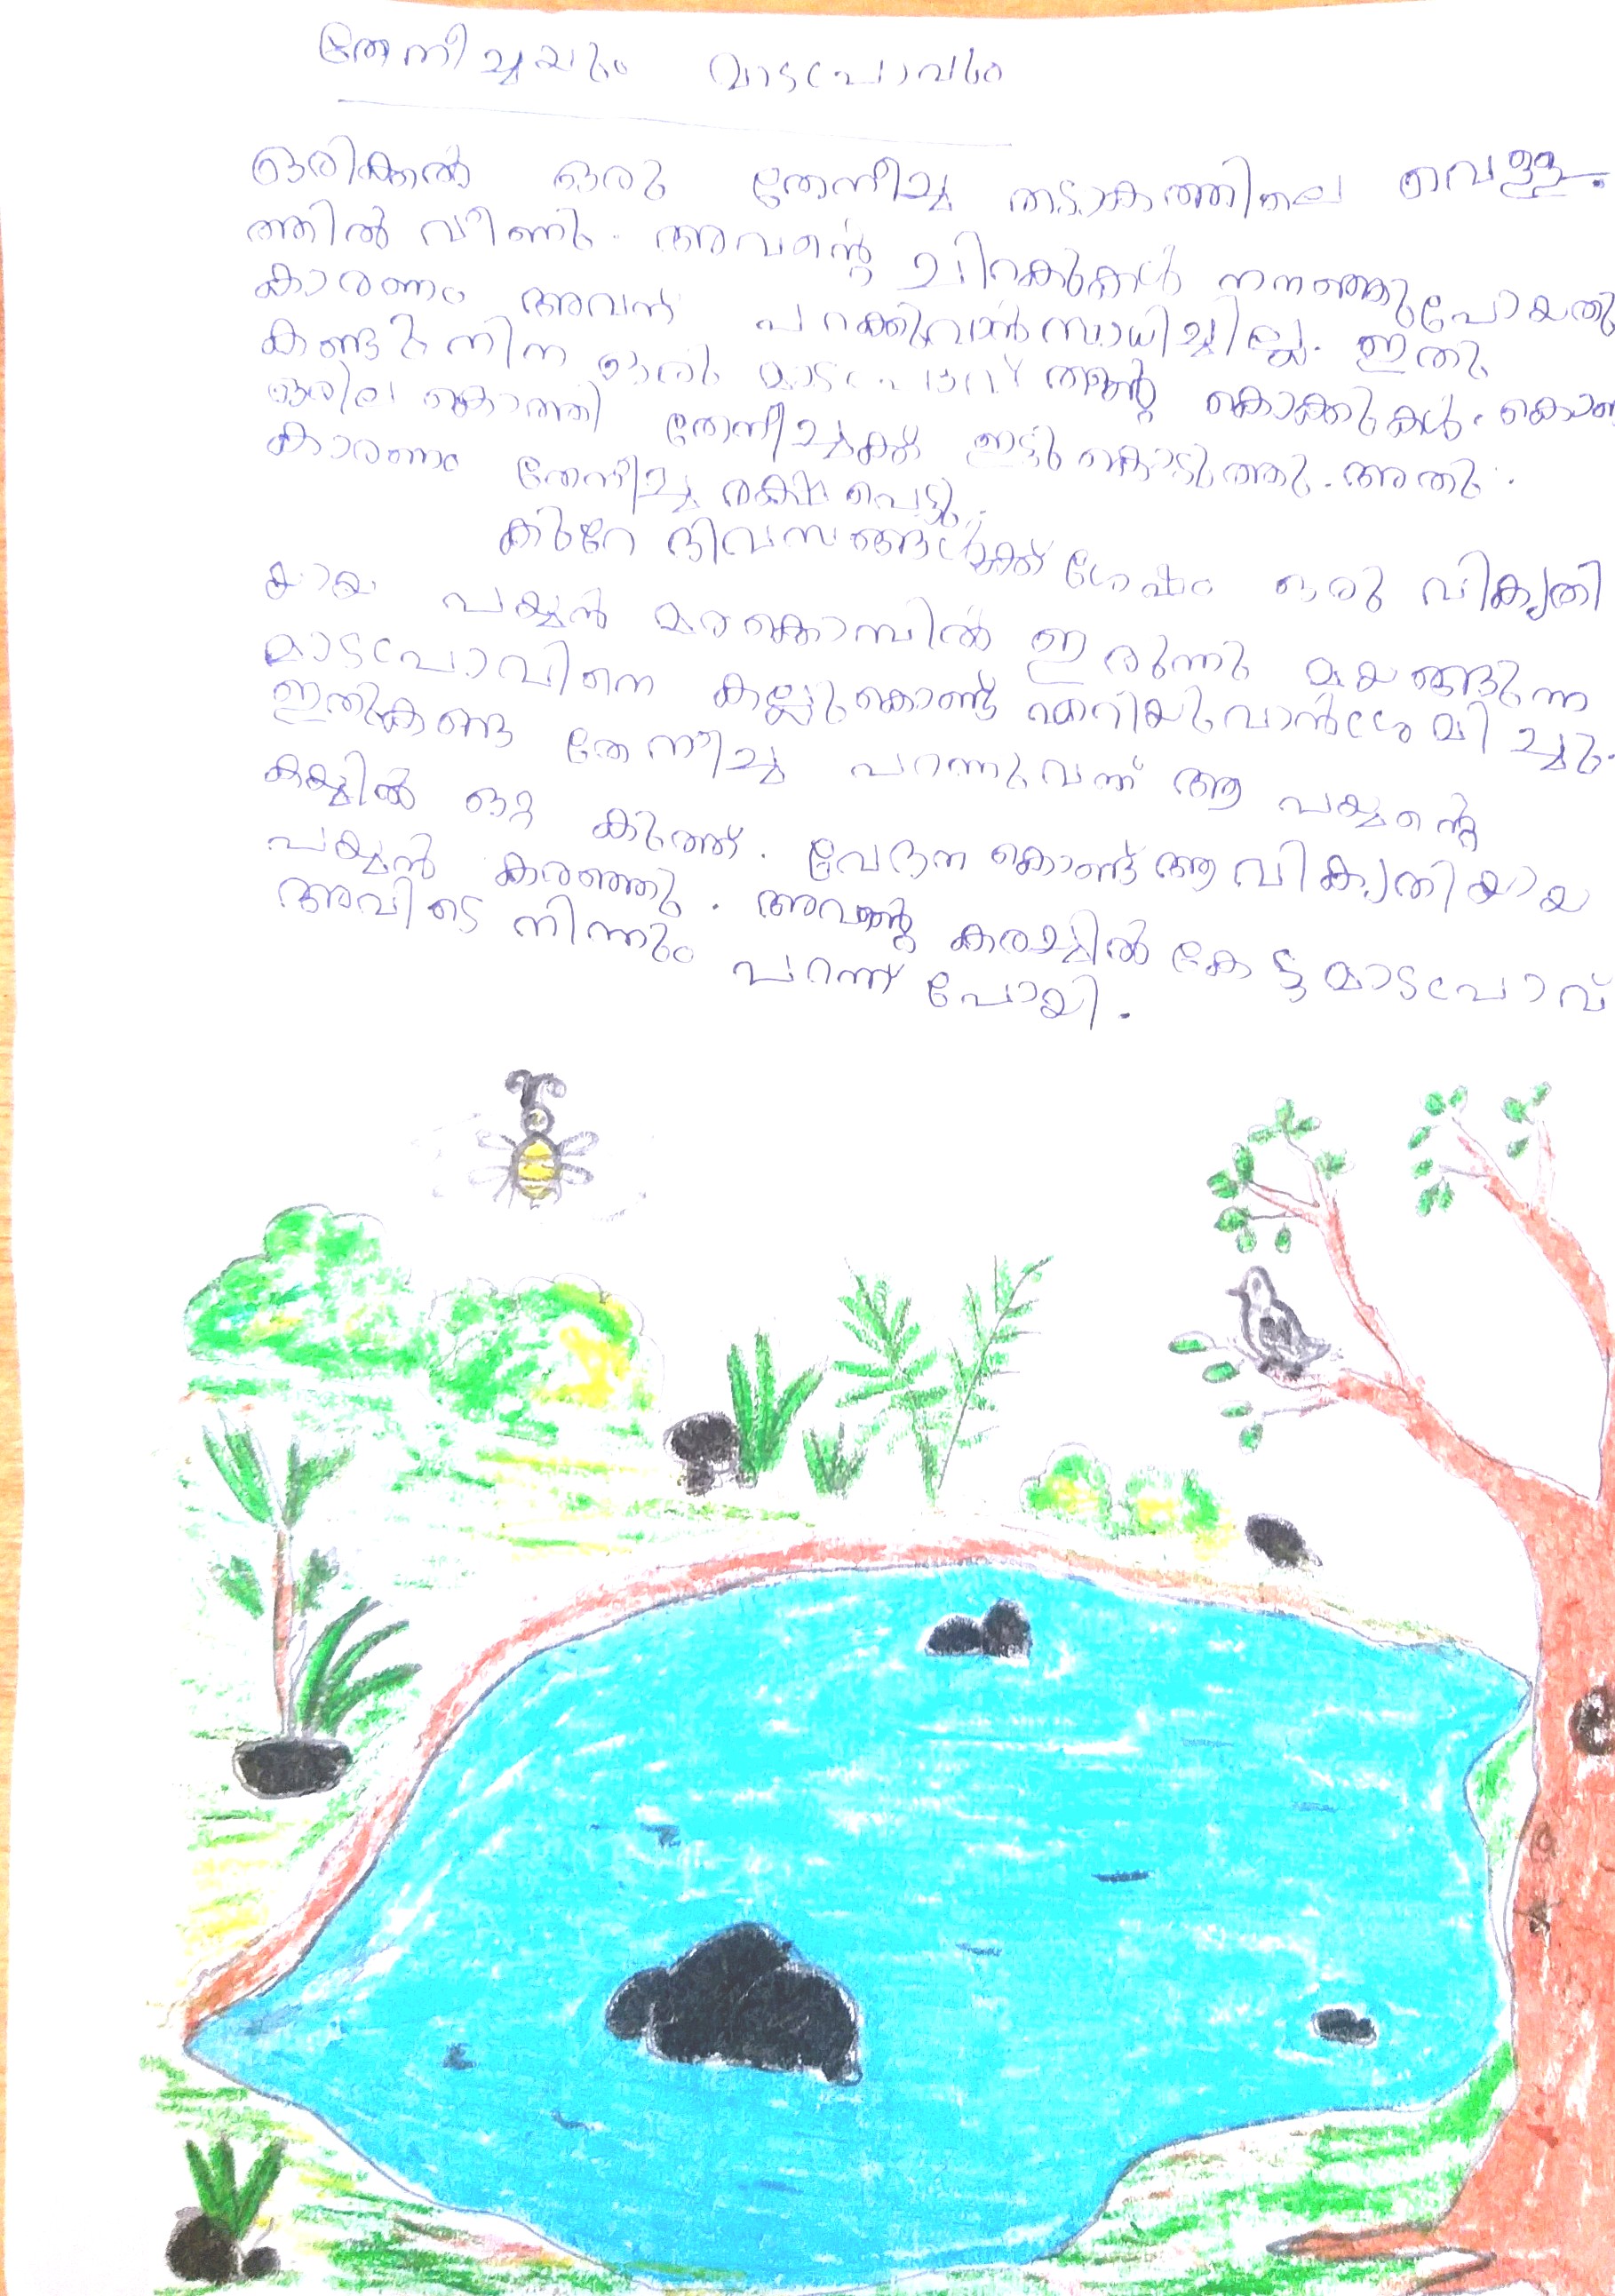 തേനീച്ചയും മാടപ്രാവും
ഒരിക്കൽ ഒരു തേനീച്ച തടാകത്തിലെ വെള്ള
ത്തിൽ വീണു. അവന്റെ ചിറകുകൾ നനഞ്ഞുപോയതു
കാരണം അവന് പറക്കുവാൻ സാധിച്ചില്ല. ഇതു
കണ്ടു നിന്ന ഒരു മാടപ്രാവ് തന്റെ കൊക്കുകൾ കൊണ്ട്
ഒരില കൊത്തി തേനീച്ചക്ക് ഇട്ടു കൊടുത്തു. അതു
കാരണം തേനീച്ച രക്ഷപെട്ടു.
കുറേ ദിവസങ്ങൾക്ക് ശേഷം ഒരു വികൃതി
യായ പയ്യൻ മരകൊമ്പിൽ ഇരുന്നു മയങ്ങുന്ന
മാടപ്രാവിനെ കല്ലുകൊണ്ട് എറിയുവാൻ ശ്രമിച്ചു.
ഇതുകണ്ട തേനീച്ച പറന്നുവന്ന് ആ പയ്യന്റെ
കയ്യിൽ ഒറ്റ കുത്ത്. വേദന കൊണ്ട് ആ വികൃതിയായ
പയ്യൻ കരഞ്ഞു. അവന്റെ കരച്ചിൽ കേട്ട മാടപ്രാവ്
അവിടെ നിന്നും പറന്ന് പോയി.